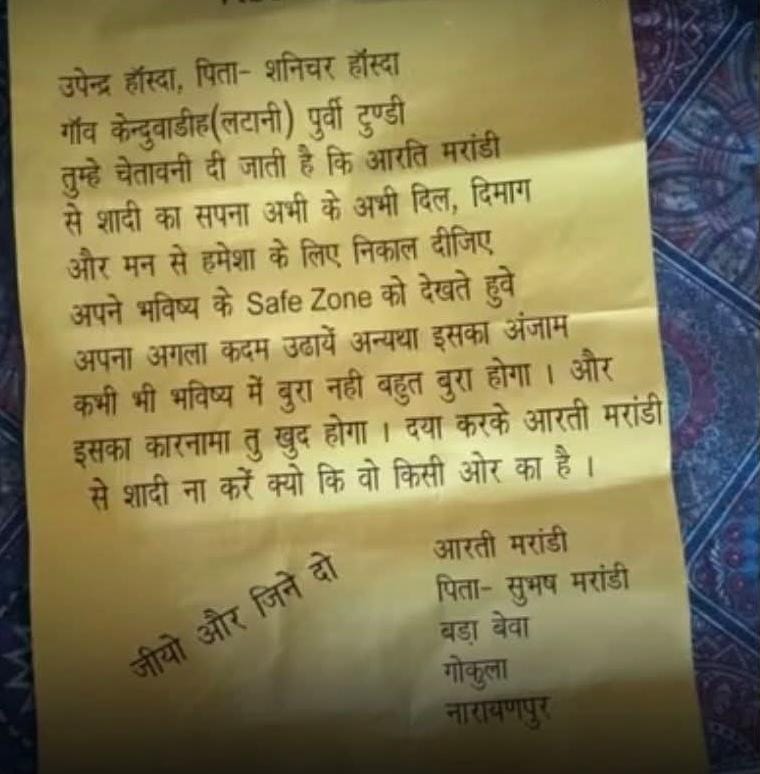 उपेन्द्र हॉस्दा, पिता- शनिचर हॉस्दा
गॉव केन्दुवाडीह(लटानी) पुर्वी टुण्डी
तुम्हे चेतावनी दी जाती है कि आरति मरांडी
से शादी का सपना अभी के अभी दिल, दिमाग
और मन से हमेशा के लिए निकाल दीजिए
अपने भविष्य के Safe Zone को देखते हुवे
अपना अगला कदम उढायें अन्यथा इसका अंजाम
कभी भी भविष्य में बुरा नही बहुत बुरा होगा । और
इसका कारनामा तु खुद होगा । दया करके आरती मरांडी
से शादी ना करें क्यो कि वो किसी ओर का है ।
आरती मरांडी
पिता- सुभष मरांडी
बड़ा बेवा
गोकुला
नारायणपुर
जीयो और जिने दो